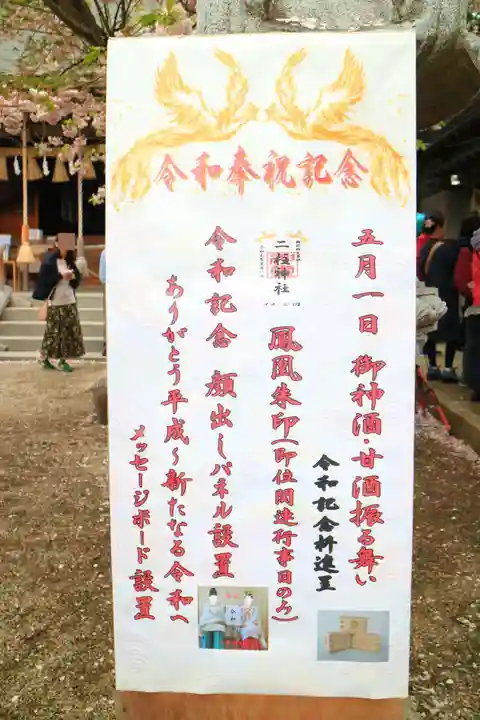 令和奉祝記念
五月一日 御神酒・甘酒振る舞い
令和記念枡進呈
二柱神社
鳳凰朱印(即位関連行事日のみ)
令和記念 顔出しパネル設置
ありがとう平成～新たなる令和へ
メッセージボード設置
令和